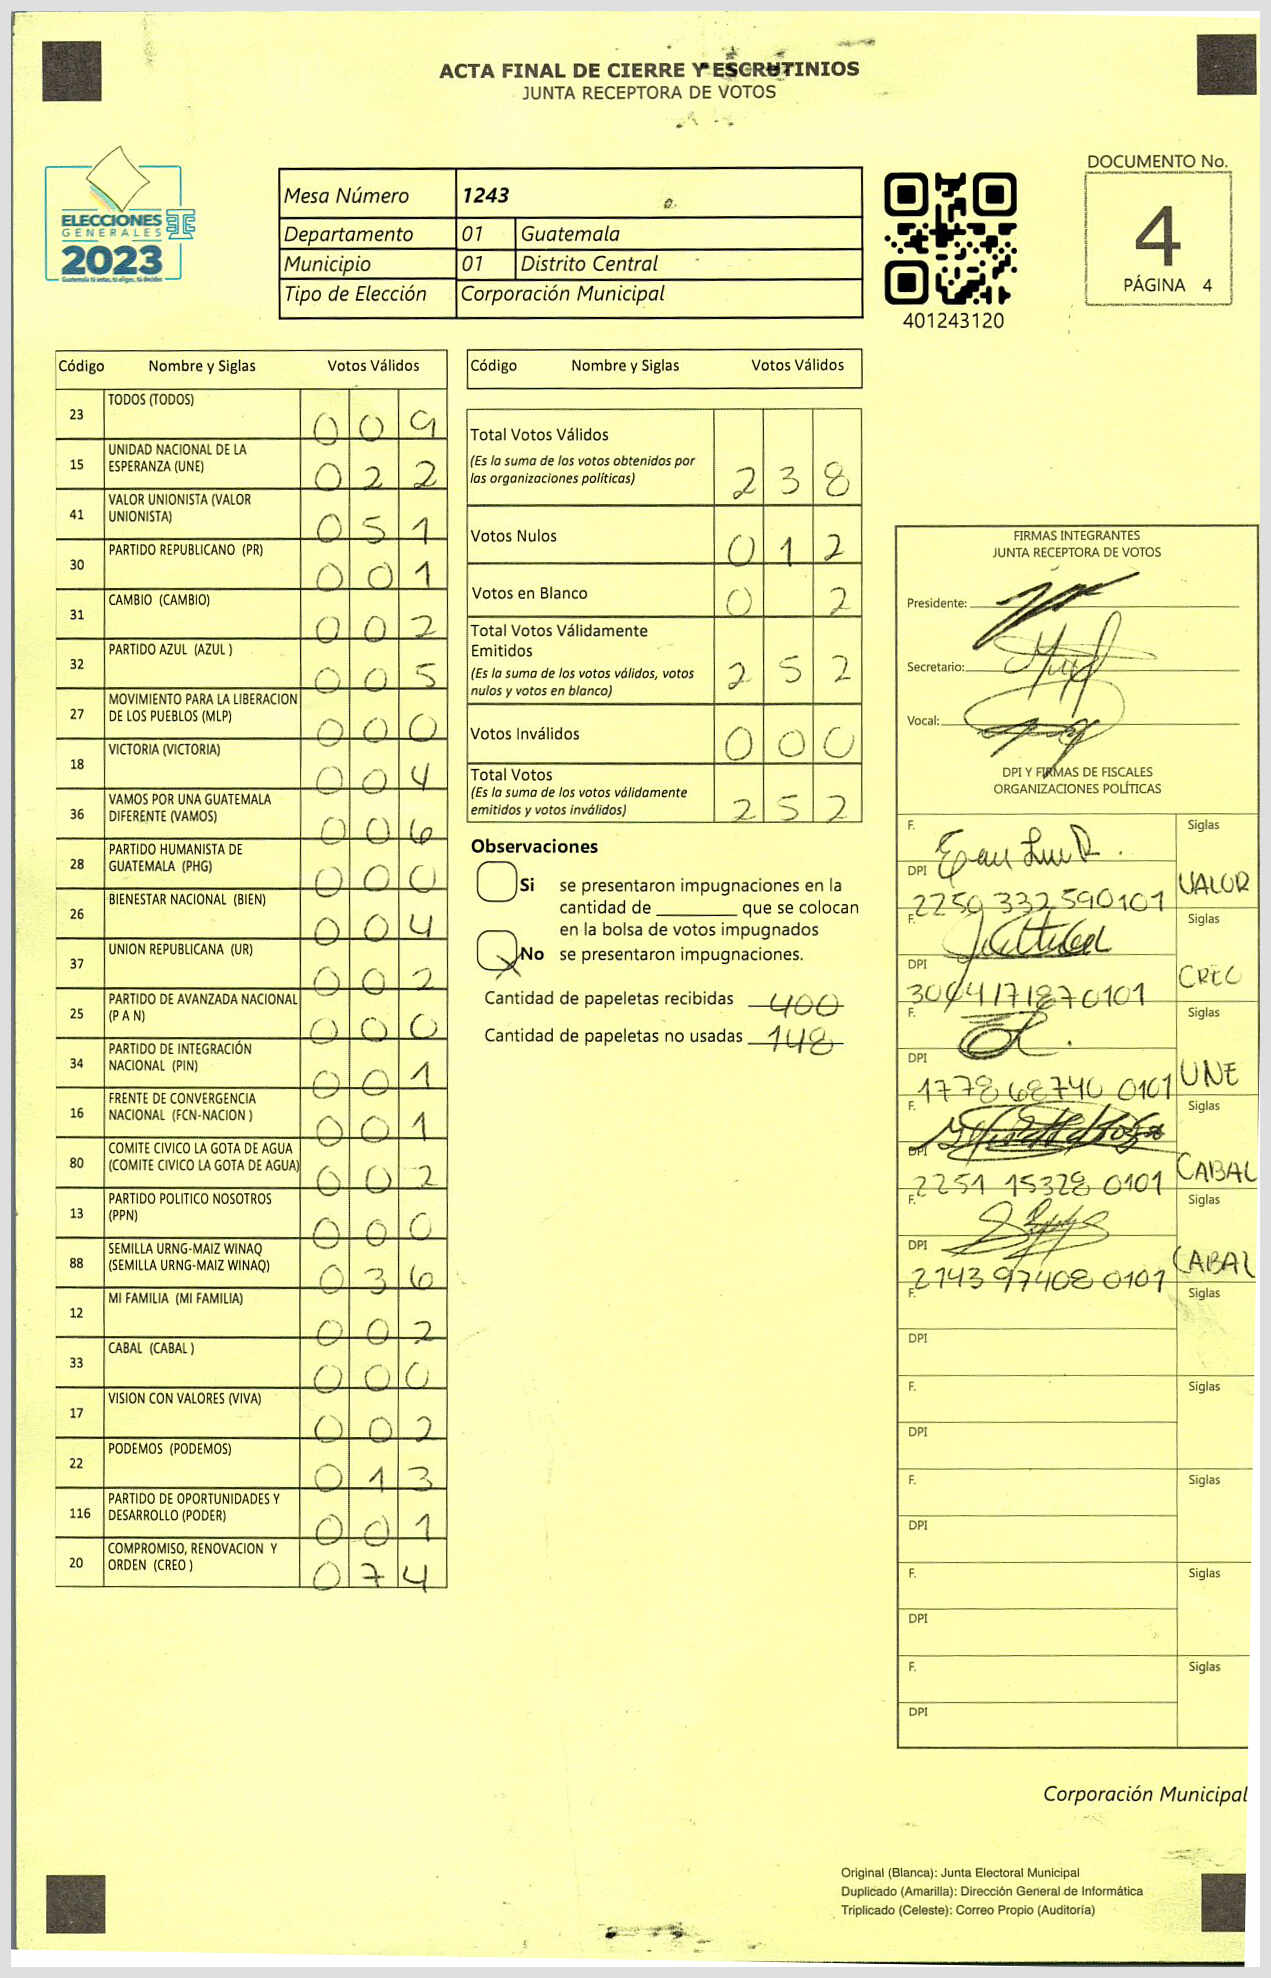 ACTA FINAL DE CIERRE Y ESCRUTINIOS
JUNTA RECEPTORA DE VOTOS
ELECCIONES
GENERALES
2023
Mesa Número 1243
Departamento 01 Guatemala
Municipio 01 Distrito Central
Tipo de Elección Corporación Municipal
401243120
DOCUMENTO No.
4
PÁGINA 4
Código Nombre y Siglas Votos Válidos
23 TODOS (TODOS) 0 0 9
15 UNIDAD NACIONAL DE LA
ESPERANZA (UNE) 0 2 2
41 VALOR UNIONISTA (VALOR
UNIONISTA) 0 5 1
30 PARTIDO REPUBLICANO (PR) 0 0 1
31 CAMBIO (CAMBIO) 0 0 2
32 PARTIDO AZUL (AZUL ) 0 0 5
27 MOVIMIENTO PARA LA LIBERACION
DE LOS PUEBLOS (MLP) 0 0 0
18 VICTORIA (VICTORIA) 0 0 4
36 VAMOS POR UNA GUATEMALA
DIFERENTE (VAMOS) 0 0 6
28 PARTIDO HUMANISTA DE
GUATEMALA (PHG) 0 0 0
26 BIENESTAR NACIONAL (BIEN) 0 0 4
37 UNION REPUBLICANA (UR) 0 0 2
25 PARTIDO DE AVANZADA NACIONAL
(P A N) 0 0 0
34 PARTIDO DE INTEGRACIÓN
NACIONAL (PIN) 0 0 1
16 FRENTE DE CONVERGENCIA
NACIONAL (FCN-NACION ) 0 0 1
80 COMITE CIVICO LA GOTA DE AGUA
(COMITE CIVICO LA GOTA DE AGUA) 0 0 2
13 PARTIDO POLITICO NOSOTROS
(PPN) 0 0 0
88 SEMILLA URNG-MAIZ WINAQ
(SEMILLA URNG-MAIZ WINAQ) 0 3 6
12 MI FAMILIA (MI FAMILIA) 0 0 2
33 CABAL (CABAL ) 0 0 0
17 VISION CON VALORES (VIVA) 0 0 2
22 PODEMOS (PODEMOS) 0 1 3
116 PARTIDO DE OPORTUNIDADES Y
DESARROLLO (PODER) 0 0 1
20 COMPROMISO, RENOVACION Y
ORDEN (CREO ) 0 7 4
Código Nombre y Siglas Votos Válidos
Total Votos Válidos
(Es la suma de los votos obtenidos por
las organizaciones políticas) 2 3 8
Votos Nulos 0 1 2
Votos en Blanco 0 2
Total Votos Válidamente
Emitidos
(Es la suma de los votos válidos, votos
nulos y votos en blanco) 2 5 2
Votos Inválidos 0 0 0
Total Votos
(Es la suma de los votos válidamente
emitidos y votos inválidos) 2 5 2
Observaciones
Si se presentaron impugnaciones en la
cantidad de ________ que se colocan
en la bolsa de votos impugnados
X No se presentaron impugnaciones.
Cantidad de papeletas recibidas 400
Cantidad de papeletas no usadas 148
FIRMAS INTEGRANTES
JUNTA RECEPTORA DE VOTOS
Presidente:
Secretario:
Vocal:
DPI Y FIRMAS DE FISCALES
ORGANIZACIONES POLÍTICAS
F. Siglas
DPI 2250 332590101 VALOR
F. Siglas
DPI 3004171870101 CREO
F. Siglas
DPI 1778 68740 0101 UNE
F. Siglas
DPI 2251 15328 0101 CABAL
F. Siglas
DPI 2143 97408 0101 CABAL
F. Siglas
DPI
F. Siglas
DPI
F. Siglas
DPI
F. Siglas
DPI
F. Siglas
DPI
Corporación Municipal
Original (Blanca): Junta Electoral Municipal
Duplicado (Amarilla): Dirección General de Informática
Triplicado (Celeste): Correo Propio (Auditoría)